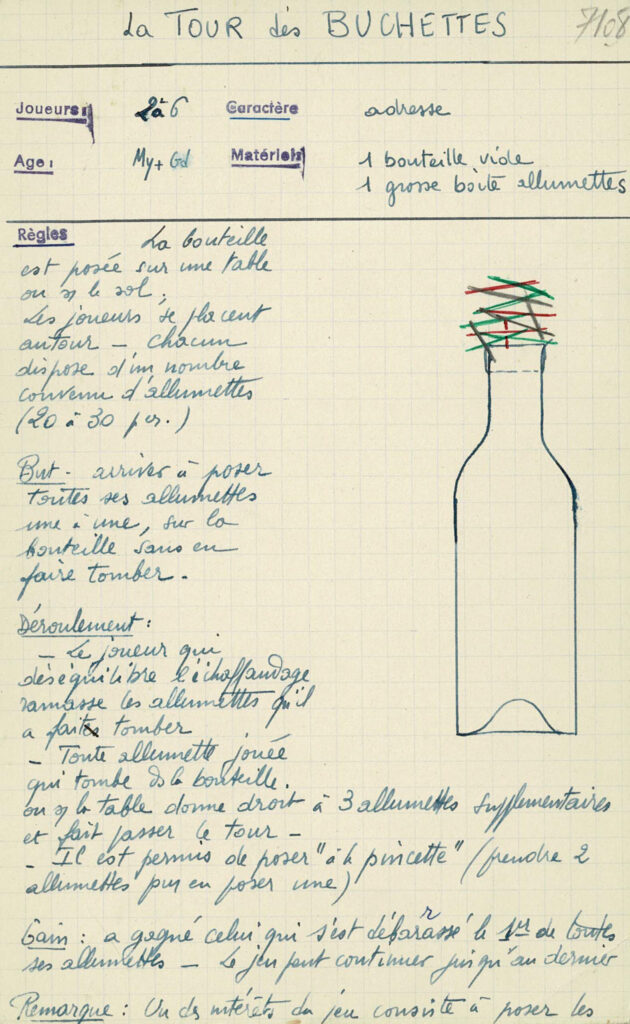 La TOUR des BUCHETTES
7108
Joueurs: 2à6 Caractère adresse
Age: My+ Gd Matériel: 1 bouteille vide
1 grosse boîte allumettes
Règles La bouteille
est posée sur une table
ou s/ le sol ;
Les joueurs se placent
autour – chacun
dispose d'un nombre
convenu d'allumettes
(20 à 30 par.)
But - arriver à poser
toutes ses allumettes
une à une, sur la
bouteille sans en
faire tomber.
Déroulement :
– Le joueur qui
déséquilibre l'échaffaudage
ramasse les allumettes qu'il
a fait tomber
– Toute allumette jouée
qui tombe ds la bouteille.
ou s/ la table donne droit à 3 allumettes supplémentaires
et fait passer le tour –
– Il est permis de poser "à la pincette" (prendre 2
allumettes pur en poser une)
Gain : a gagné celui qui s'est débarrassé le 1er de toutes
ses allumettes – Le jeu peut continuer jusqu'au dernier
Remarque : Un des intérêts du jeu consiste à poser les